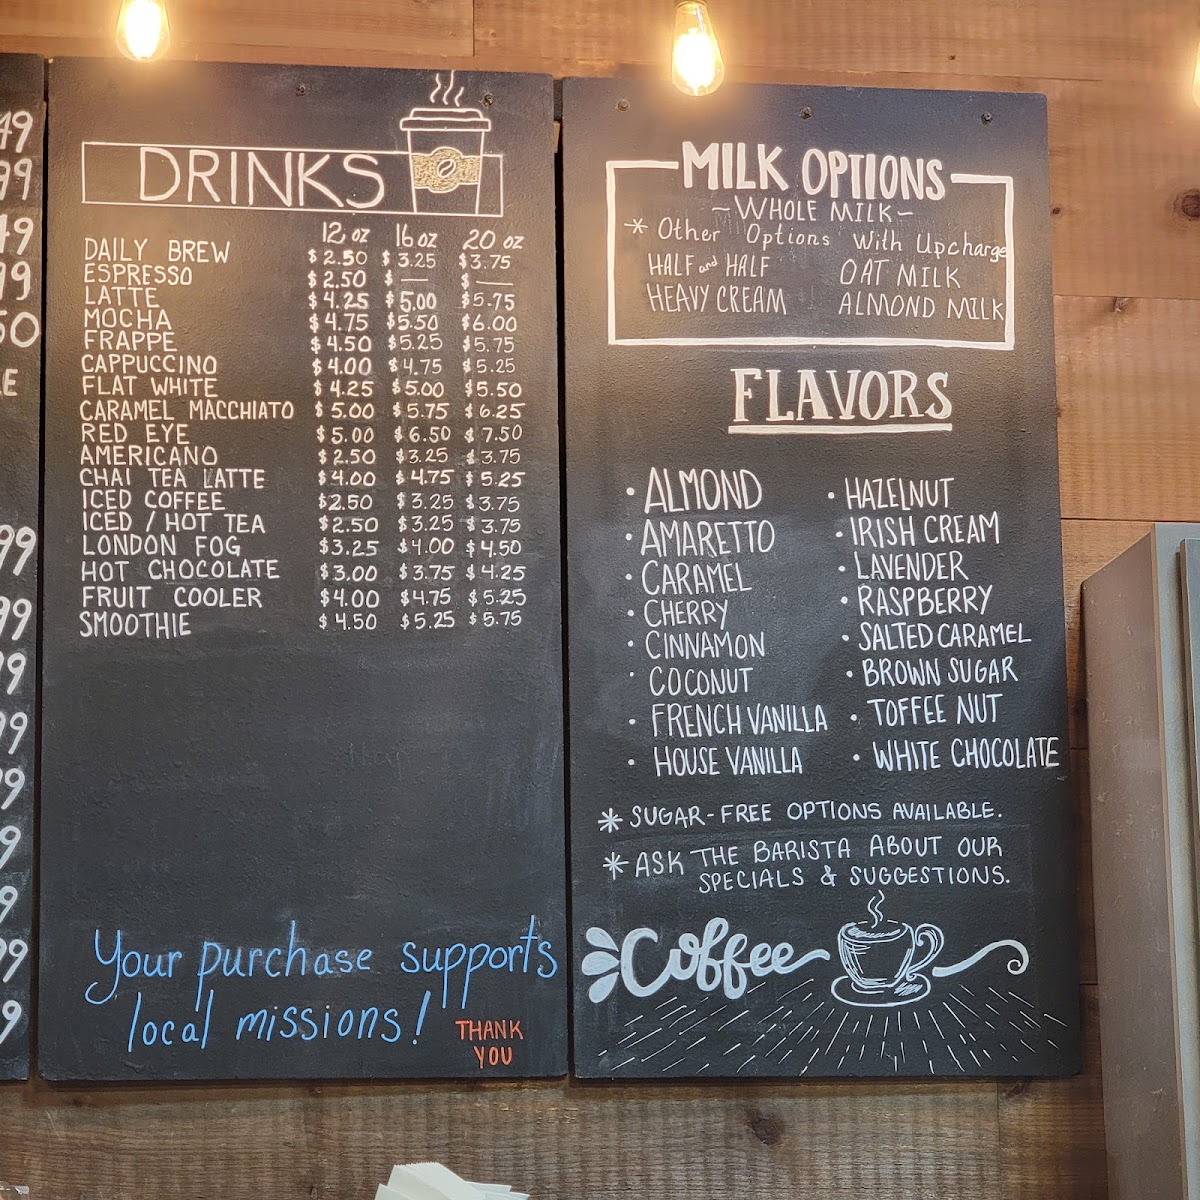 49
99
49
99
50
E
99
99
99
99
99
9
9
99
9
DRINKS
12 oz 16 oz 20 oz
DAILY BREW $2.50 $3.25 $3.75
ESPRESSO $2.50 $— $—
LATTE $4.25 $5.00 $5.75
MOCHA $4.75 $5.50 $6.00
FRAPPE $4.50 $5.25 $5.75
CAPPUCCINO $4.00 $4.75 $5.25
FLAT WHITE $4.25 $5.00 $5.50
CARAMEL MACCHIATO $5.00 $5.75 $6.25
RED EYE $5.00 $6.50 $7.50
AMERICANO $2.50 $3.25 $3.75
CHAI TEA LATTE $4.00 $4.75 $5.25
ICED COFFEE $2.50 $3.25 $3.75
ICED / HOT TEA $2.50 $3.25 $3.75
LONDON FOG $3.25 $4.00 $4.50
HOT CHOCOLATE $3.00 $3.75 $4.25
FRUIT COOLER $4.00 $4.75 $5.25
SMOOTHIE $4.50 $5.25 $5.75
Your purchase supports
local missions!
THANK
YOU
MILK OPTIONS
~WHOLE MILK~
* Other Options With Upcharge
HALF and HALF OAT MILK
HEAVY CREAM ALMOND MILK
FLAVORS
• ALMOND • HAZELNUT
• AMARETTO • IRISH CREAM
• CARAMEL • LAVENDER
• CHERRY • RASPBERRY
• CINNAMON • SALTED CARAMEL
• COCONUT • BROWN SUGAR
• FRENCH VANILLA • TOFFEE NUT
• HOUSE VANILLA • WHITE CHOCOLATE
* SUGAR-FREE OPTIONS AVAILABLE.
* ASK THE BARISTA ABOUT OUR
SPECIALS & SUGGESTIONS.
Coffee